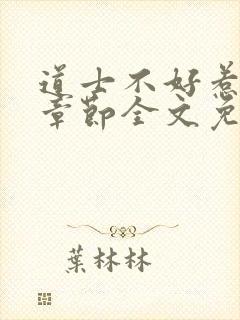 道士不好惹
章節全文免
葉林林